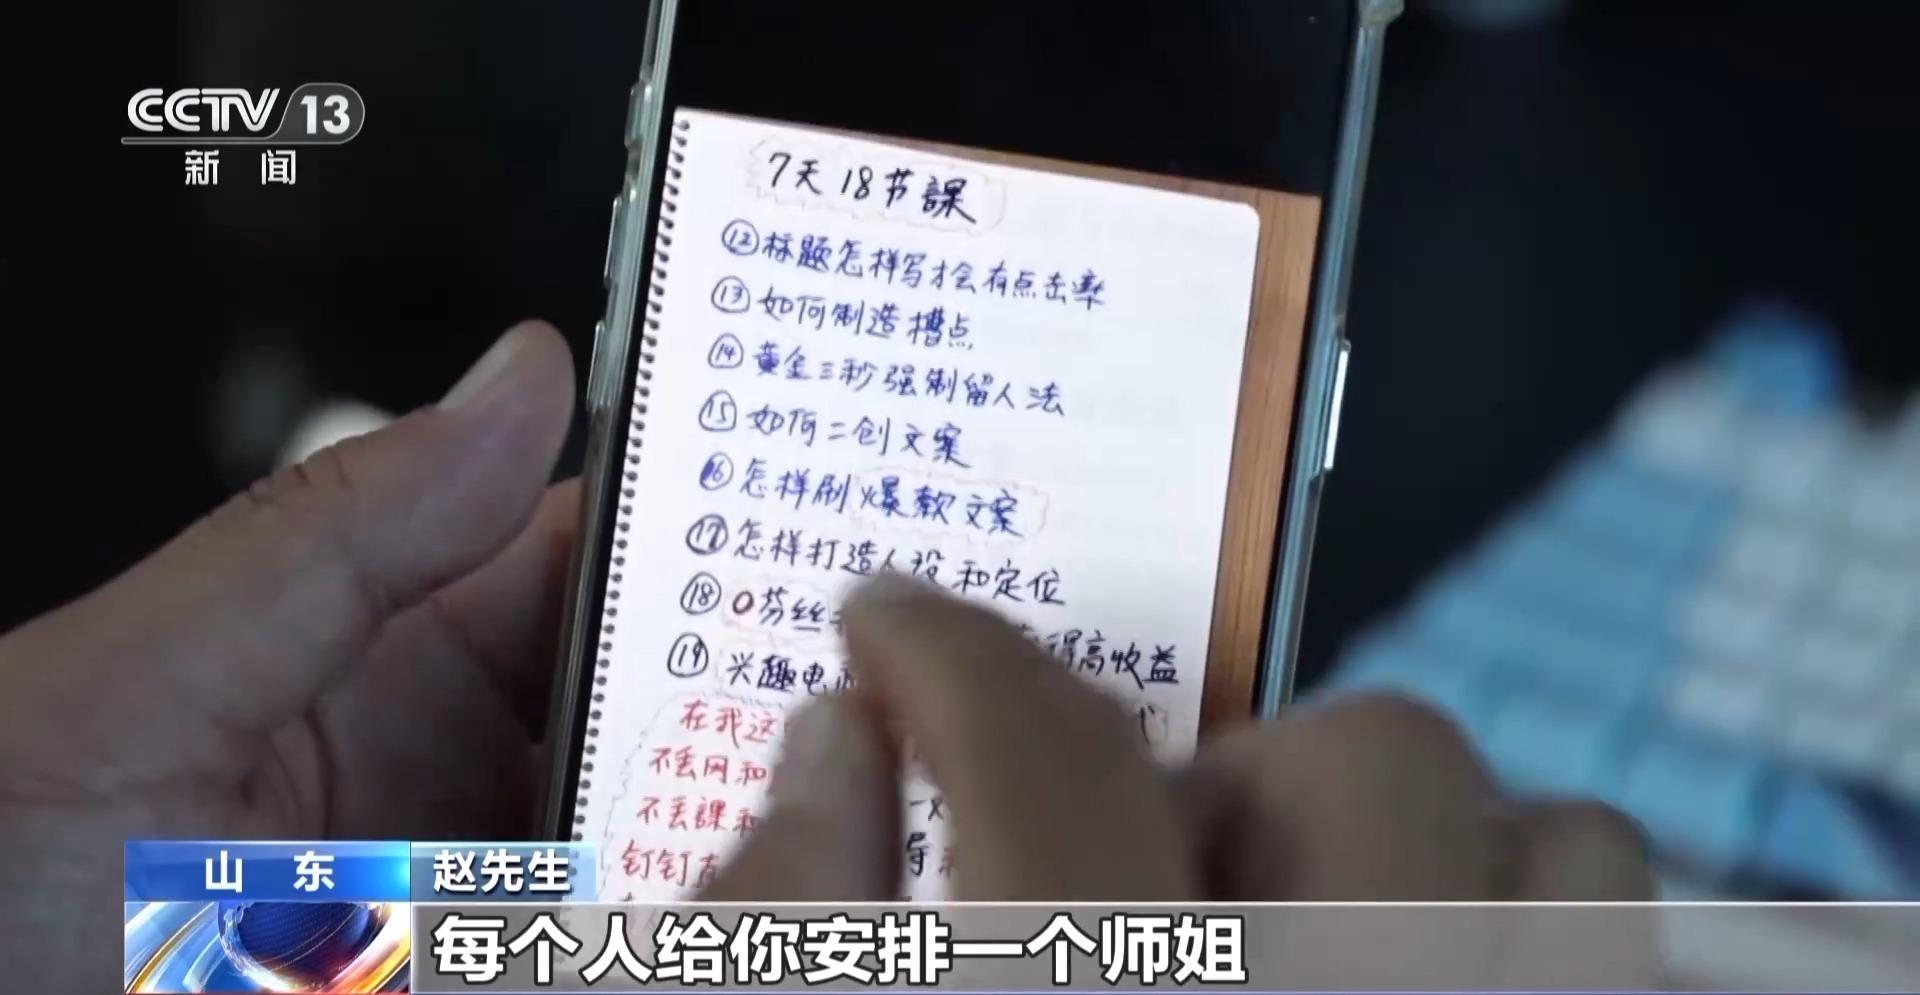 CCTV 13
新闻
7天18节課
⑫标题怎样写才会有点击率
⑬如何制造槽点
⑭黄金三秒强制留人法
⑮如何二创文案
⑯怎样刷爆款文案
⑰怎样打造人设和定位
⑱0芬丝 得高收益
⑲兴趣电
在我这
不丢网和
不丢課和
钉钉
导
山东
赵先生
每个人给你安排一个师姐